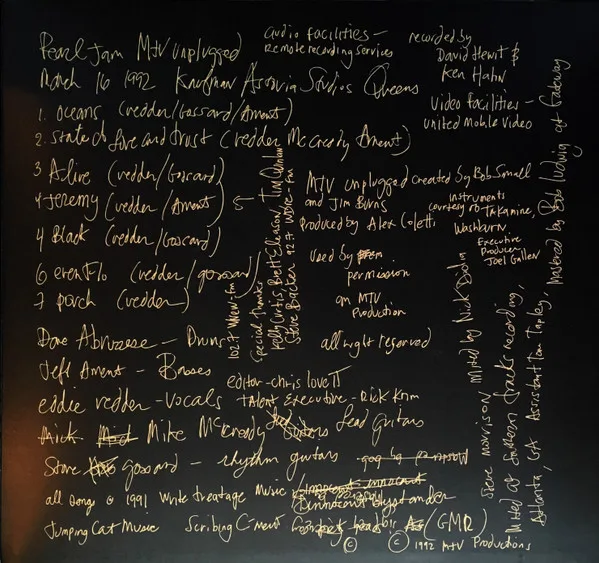 Pearl Jam MTV unplugged
March 16 1992 Kaufman Astoria Studios Queens
1. oceans (vedder/Gossard/Ament)
2. State of love and trust (vedder McCready Ament)
3 Alive (vedder/Gossard)
4 Jeremy (vedder/Ament) 5
4 Black (vedder/Gossard)
6 evenflo (vedder/gossard)
7 porch (vedder)
Dave Abruzzese - Drums
Jeff Ament - Basses
eddie vedder - vocals
Mike McCready Lead Guitars
Stone gossard - rhythm guitars
all songs © 1991 write treatage music
innocent bystander
Jumping Cat Music Scribing C-ment (GMR)
© © 1992 MTV Productions
audio facilities -
Remote recording services
recorded by
David Hewit &
Ken Hahn
Video facilities -
united mobile video
MTV unplugged created by Bob Small
and Jim Burns
Produced by Alex Coletti
Instruments
courtesy of Takamine,
Washburn
Executive
Producer
Joel Gallen
Used by
permission
an MTV
Production
all right reserved
editor - chris love II
talent executive - Rick Krim
102.7 WNEW-FM
Special Thanks
Polly Curtis Brett Eliason, Tim
Steve Backer 92.7 WDRE-FM
Steve morrison Mixed by Nick Didia
Mixed at southern tracks recording,
Atlanta, GA Assistant Tom Tapley,
mastered by Bob Ludwig at Gateway